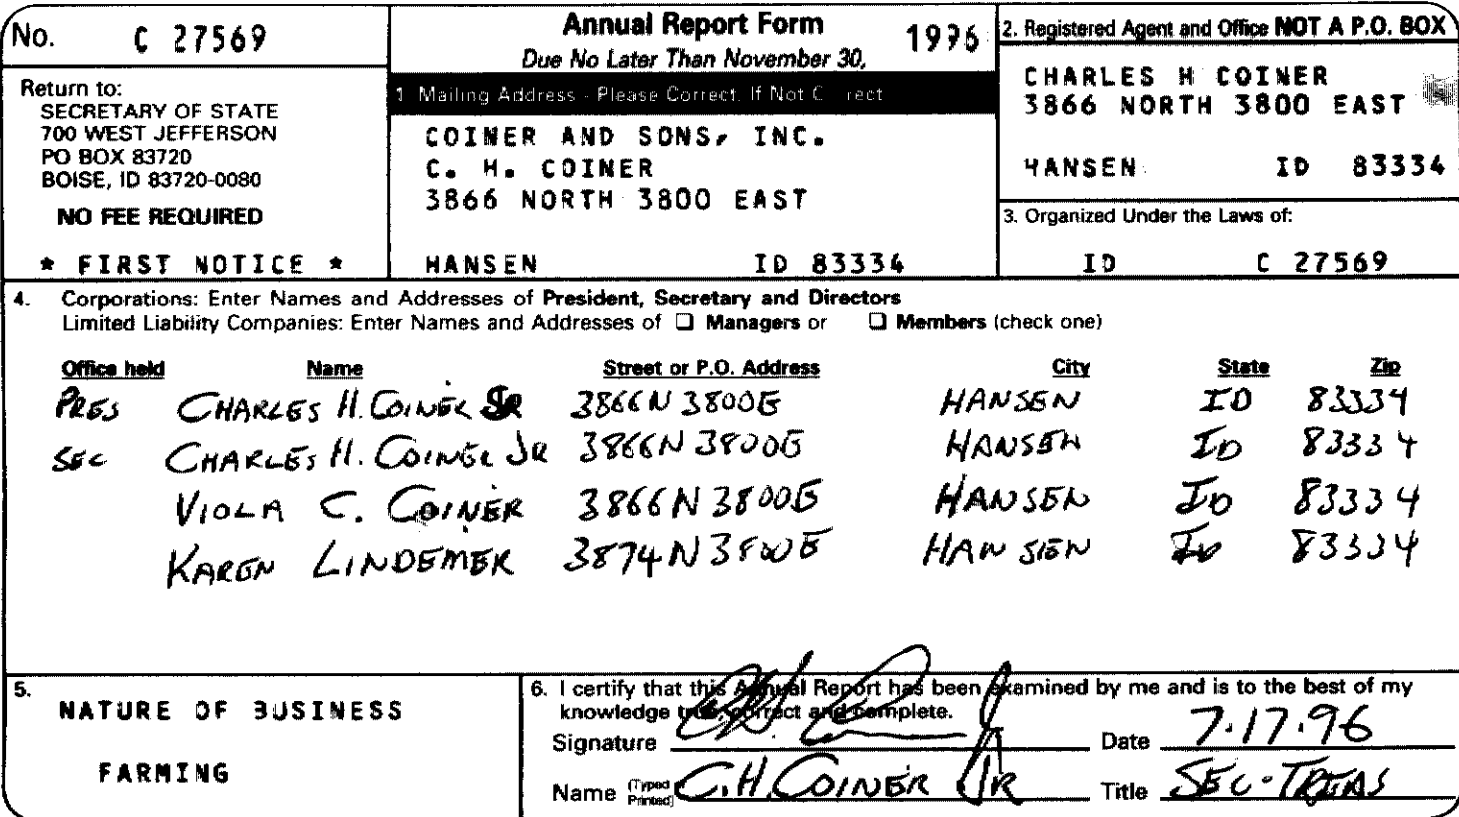 No. C 27569
Return to:
SECRETARY OF STATE
700 WEST JEFFERSON
PO BOX 83720
BOISE, ID 83720-0080
NO FEE REQUIRED
* FIRST NOTICE *
Annual Report Form 1996
Due No Later Than November 30,
1 Mailing Address - Please Correct, If Not C rect
COINER AND SONS, INC.
C. H. COINER
3866 NORTH 3800 EAST
HANSEN ID 83334
2. Registered Agent and Office NOT A P.O. BOX
CHARLES H COINER
3866 NORTH 3800 EAST
HANSEN ID 83334
3. Organized Under the Laws of:
ID C 27569
4. Corporations: Enter Names and Addresses of President, Secretary and Directors
Limited Liability Companies: Enter Names and Addresses of ☐ Managers or ☐ Members (check one)
Office held Name Street or P.O. Address City State Zip
PRES CHARLES H. COINER SR 3866 N 3800 E HANSEN ID 83334
SEC CHARLES H. COINER JR 3866 N 3800 E HANSEN ID 83334
VIOLA C. COINER 3866 N 3800 E HANSEN ID 83334
KAREN LINDEMER 3874 N 3800 E HANSEN ID 83334
5.
NATURE OF BUSINESS
FARMING
6. I certify that this Annual Report has been examined by me and is to the best of my
knowledge true, correct and complete.
Signature Date 7.17.96
Name (Typed Printed) C.H. COINER JR Title SEC-TREAS